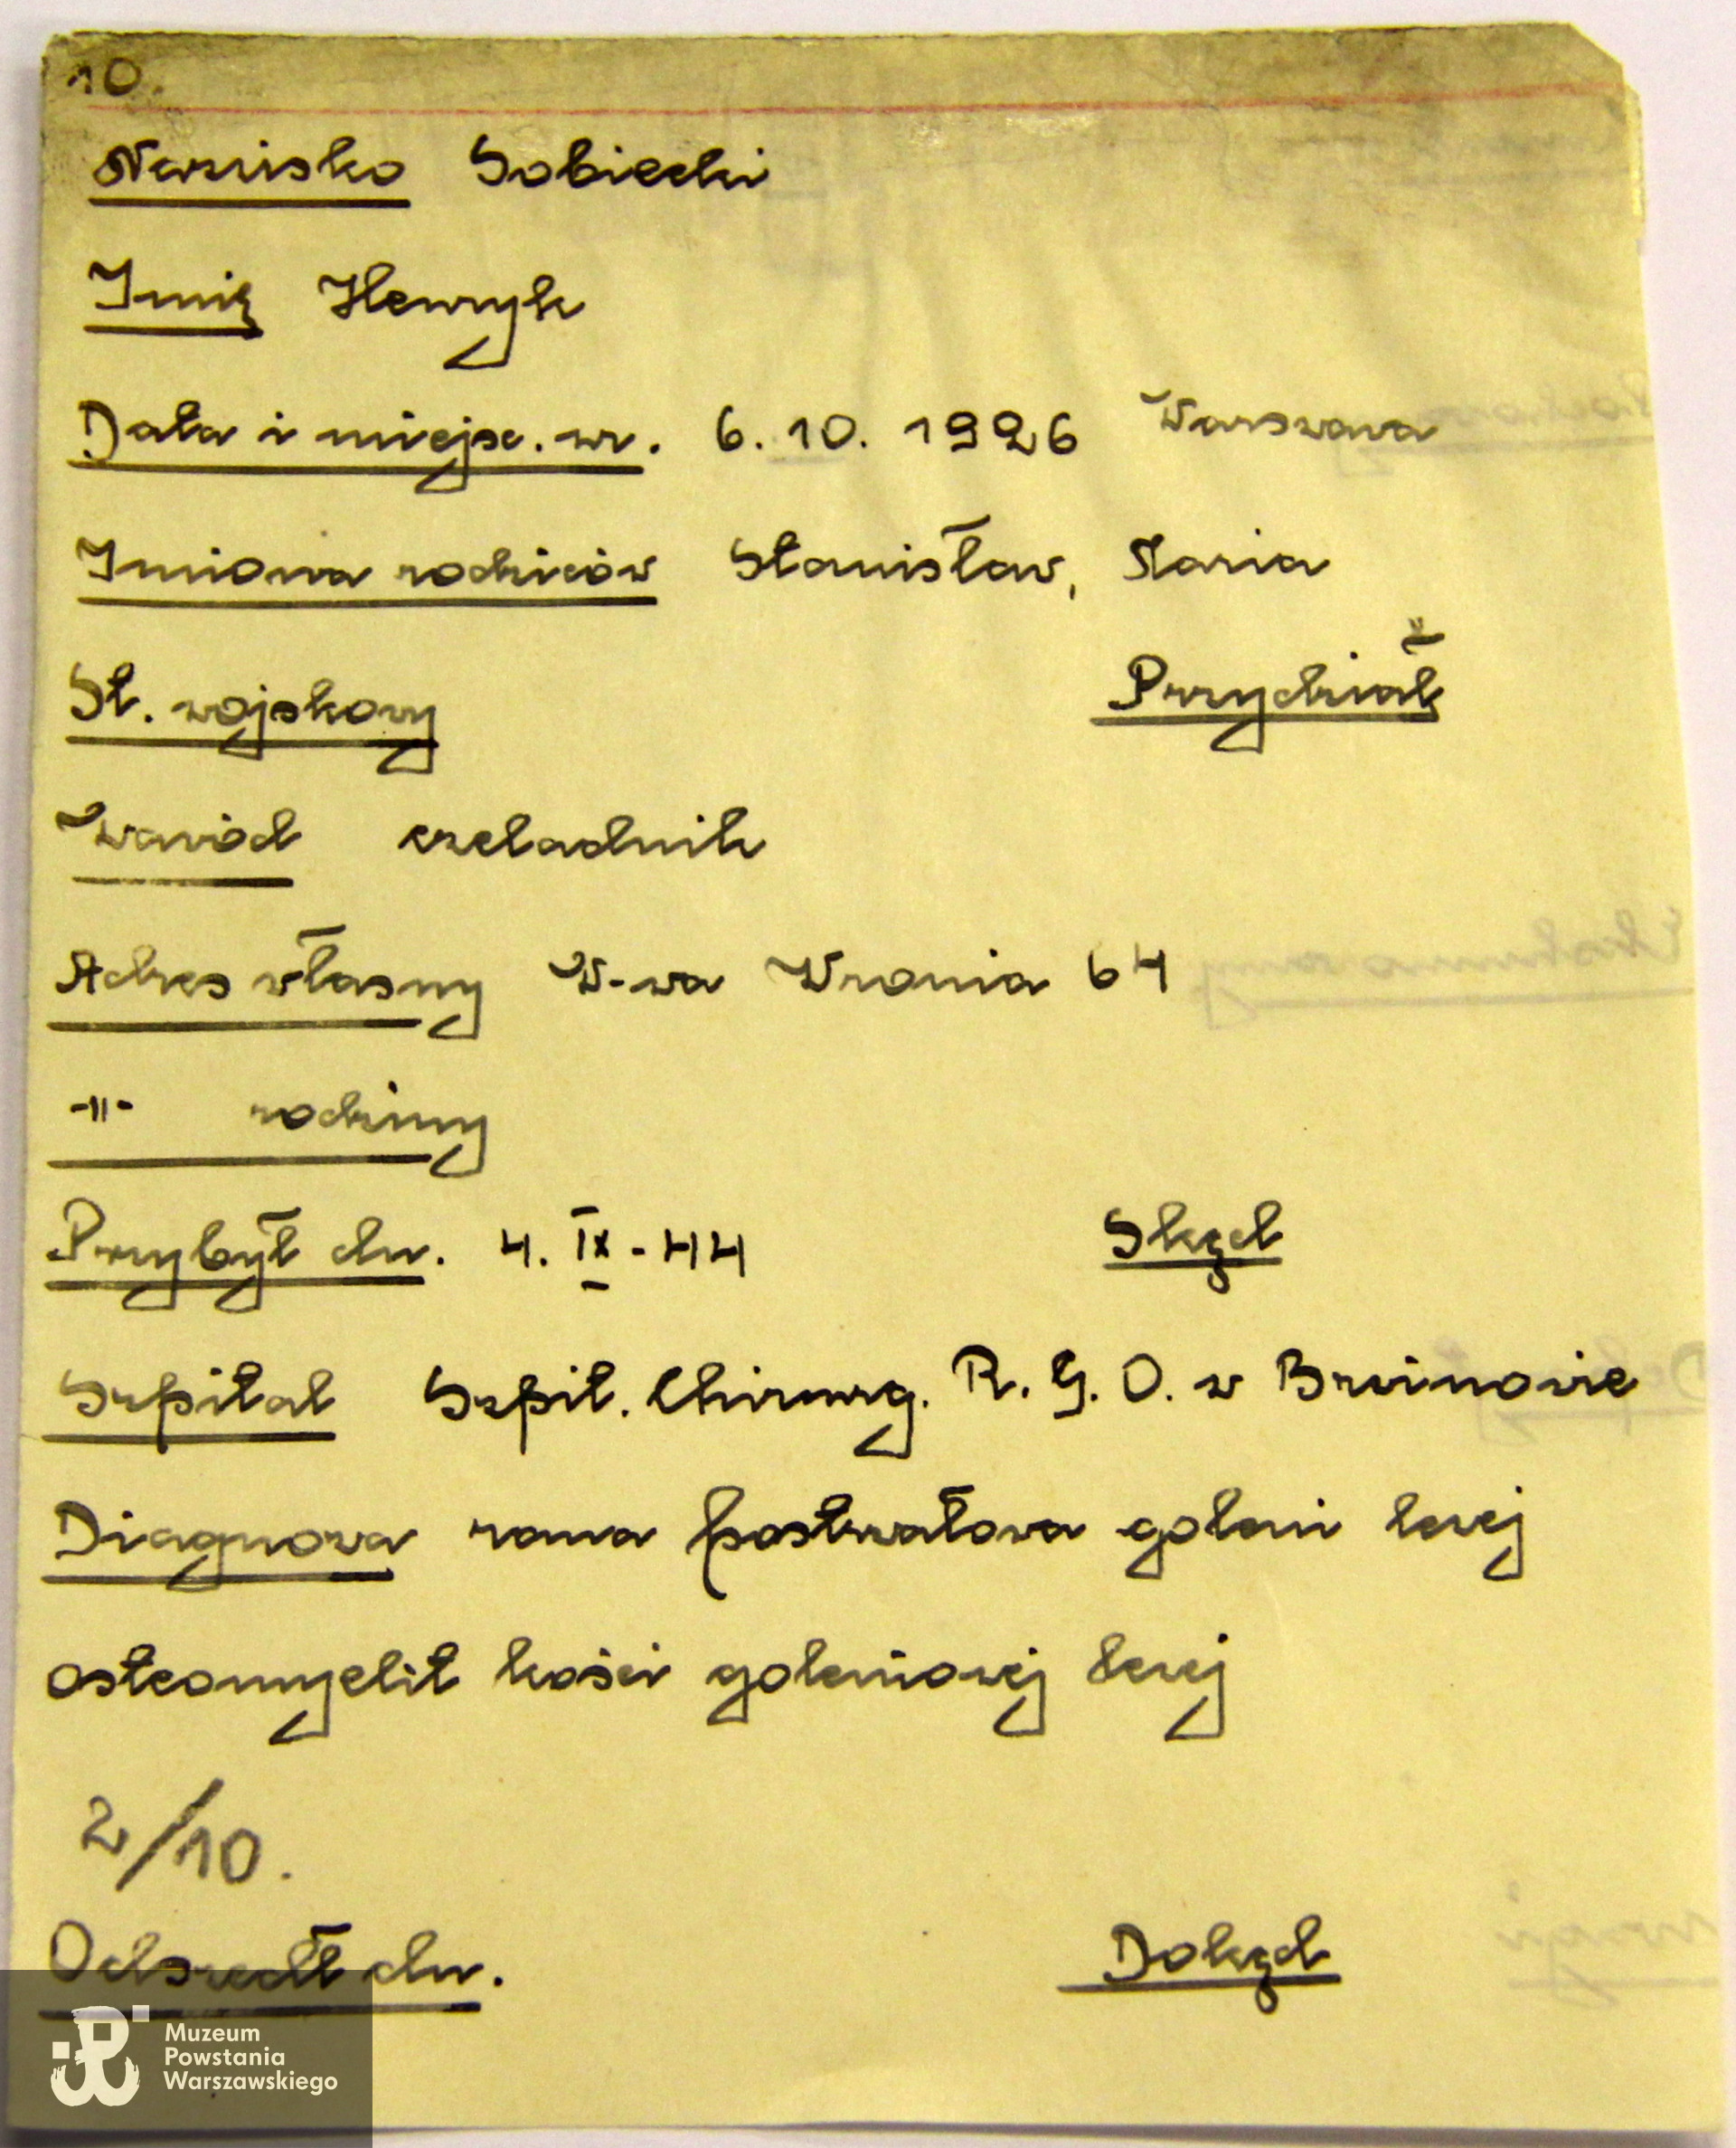 10.
Nazwisko Sobiecki
Imię Henryk
Data i miejsc. ur. 6. 10. 1926 Warszawa
Imiona rodziców Stanisław, Maria
St. wojskowy Przydział
Zawód czeladnik
Adres własny W-wa Wronia 64
-"- rodziny
Przybył dn. 4. IX - 44 Skąd
Szpital Szpit. Chirurg. R. G. O. w Brwinowie
Diagnoza rana postrzałowa goleni lewej
osteomyelit kości goleniowej lewej
2/10.
Odszedł dn. Dokąd
Muzeum
Powstania
Warszawskiego